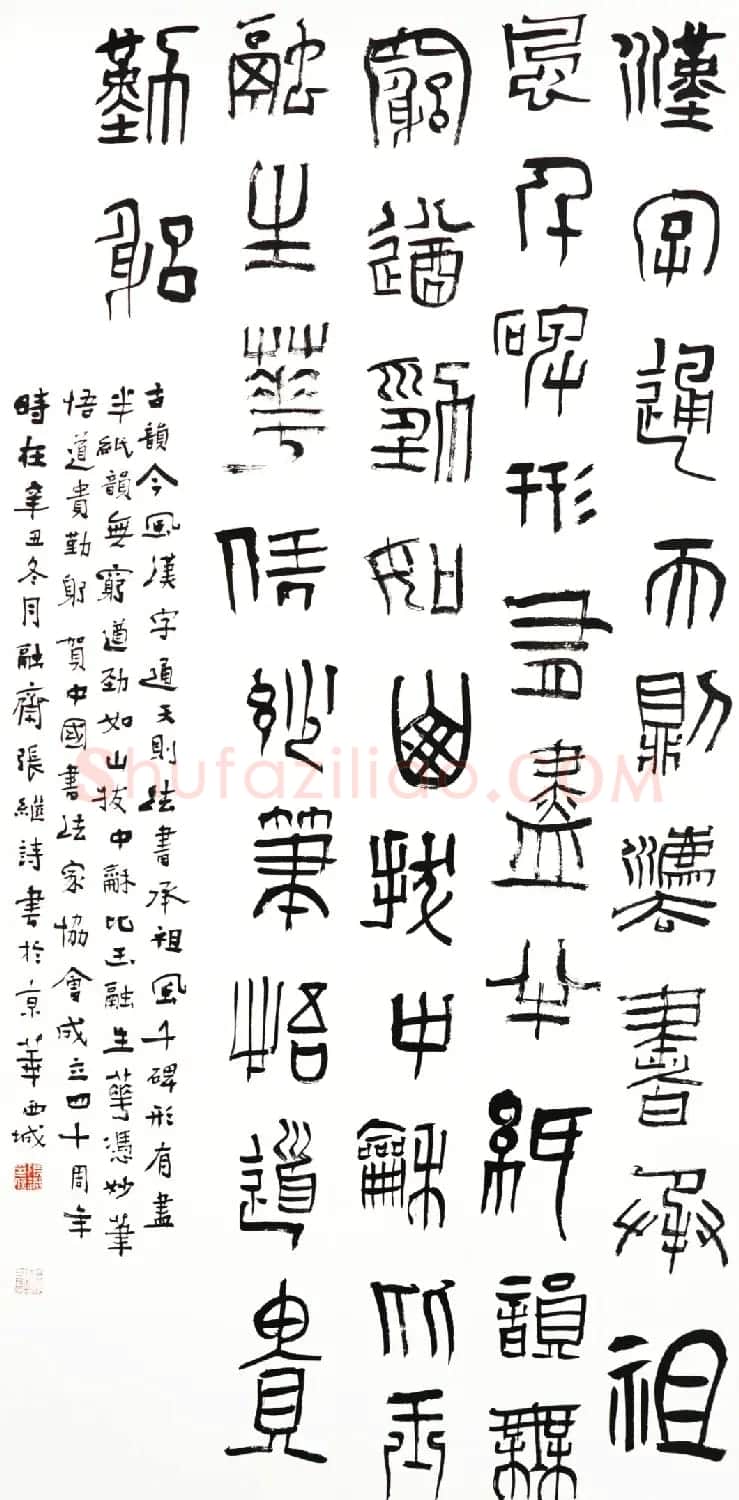 漢字通天則灋書承祖
風千碑形有盡半紙韻無
窮遒勁如山拔中龢比玉
融生華憑妙筆悟道貴
勤躬
古韻今風漢字通天則法書承祖風千碑形有盡
半紙韻無窮遒勁如山拔中龢比玉融生華憑妙筆
悟道貴勤躬賀中國書法家協會成立四十周年
時在辛丑冬月融齋張繼詩書於京華西城
Shufaziliao.COM